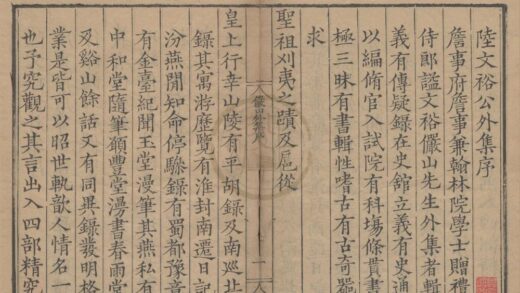 陸文裕公外集序
詹事府詹事兼翰林院學士贈禮
侍郎謚文裕儼山先生外集者輯
義有傳疑録在史舘立義有史通
以編脩官入試院有科塲條貫書
極三昧有書輯性嗜古有古奇器
求
聖祖刈夷之蹟及扈從
皇上行幸山陵有平胡録及南巡北
録其寓游歷覽有淮封南遷日記
汾燕閒知命停驂録有蜀都豫章
有金臺紀聞玉堂漫筆其燕私有
中和堂隨筆願豊堂漫書春雨堂
及谿山餘話又有同異録發明格
業是皆可以昭世軌歆人情名一
也予究觀之其言出入四部精究